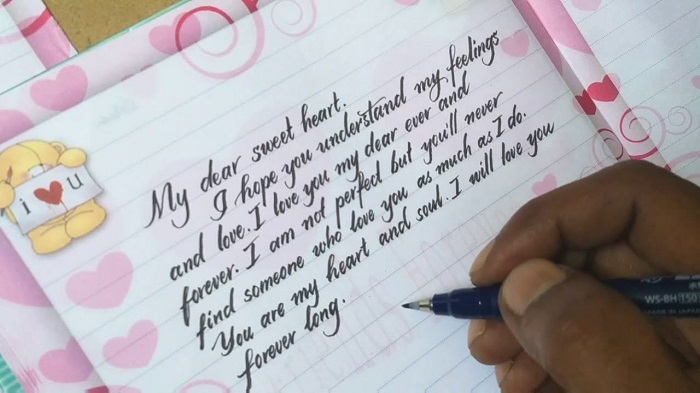 My dear sweet heart.
I hope you understand my feelings
and love. I love you my dear ever and
forever. I am not perfect but you'll never
find someone who love you as much as I do.
You are my heart and soul. I will love you
forever long.
i u
WS-BH 150
MADE IN JAPAN